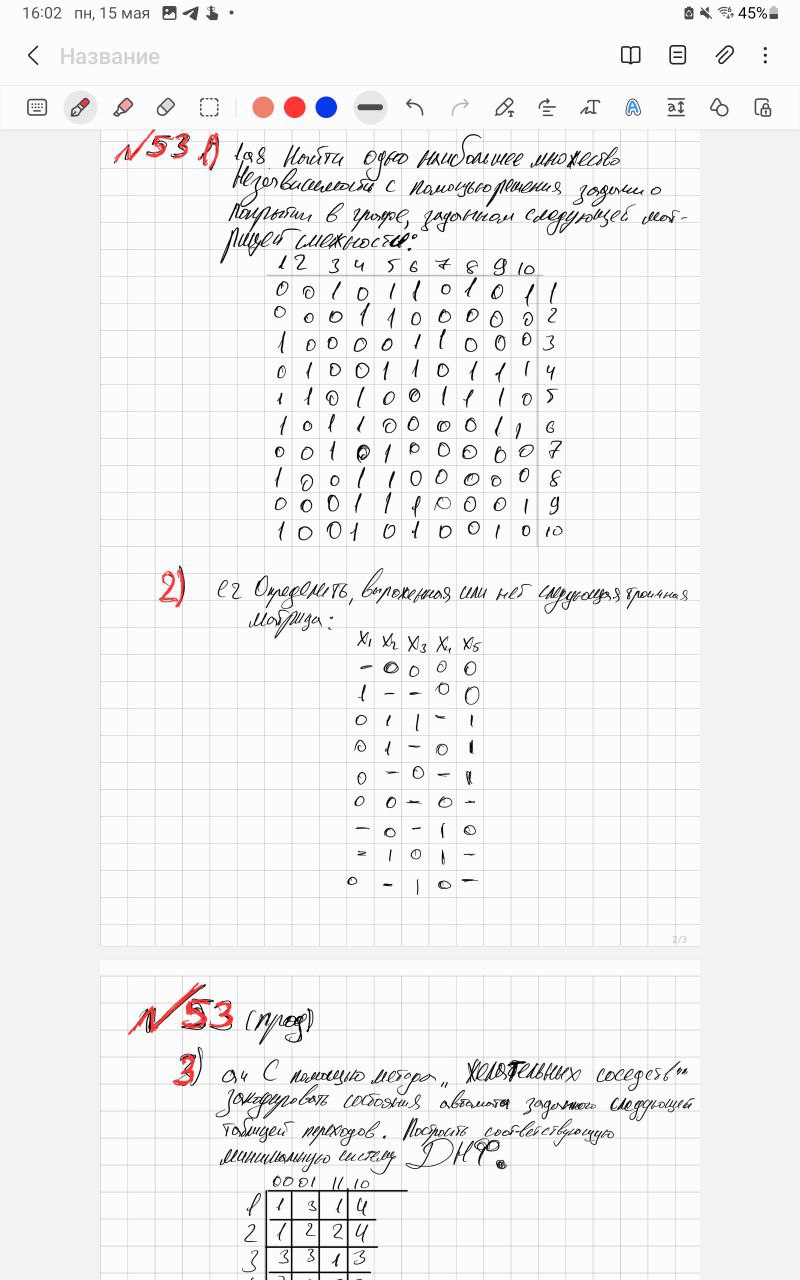 16:02 пн, 15 мая 45%
Название
№53 1) 1а8. Найти одно наибольшее множество
Независимости с помощью решения задачи о
покрытии в графе, заданном следующей мат-
рицей смежности:
1 2 3 4 5 6 7 8 9 10
0 0 1 0 1 1 0 1 0 1 1
0 0 0 1 1 0 0 0 0 0 2
1 0 0 0 0 1 1 0 0 0 3
0 1 0 0 1 1 0 1 1 1 4
1 1 0 1 0 0 1 1 1 0 5
1 0 1 1 0 0 0 0 1 1 6
0 0 1 0 1 0 0 0 0 0 7
1 0 0 1 1 0 0 0 0 0 8
0 0 0 1 1 1 0 0 0 1 9
1 0 0 1 0 1 0 0 1 0 10
2) е2 Определить, вырожденная или нет следующая троичная
матрица:
x1 x2 x3 x4 x5
- 0 0 0 0
1 - - 0 0
0 1 1 - 1
0 1 - 0 1
0 - 0 - 1
0 0 - 0 -
- 0 - 1 0
- 1 0 1 -
0 - 1 0 -
2/3
№53 (прод)
3) а4 С помощью метода „желательных соседств"
закодировать состояния автомата заданного следующей
таблицей переходов. Построить соответствующую
минимальную систему ДНФ.
00 01 11 10
1 1 3 1 4
2 1 2 2 4
3 3 3 1 3